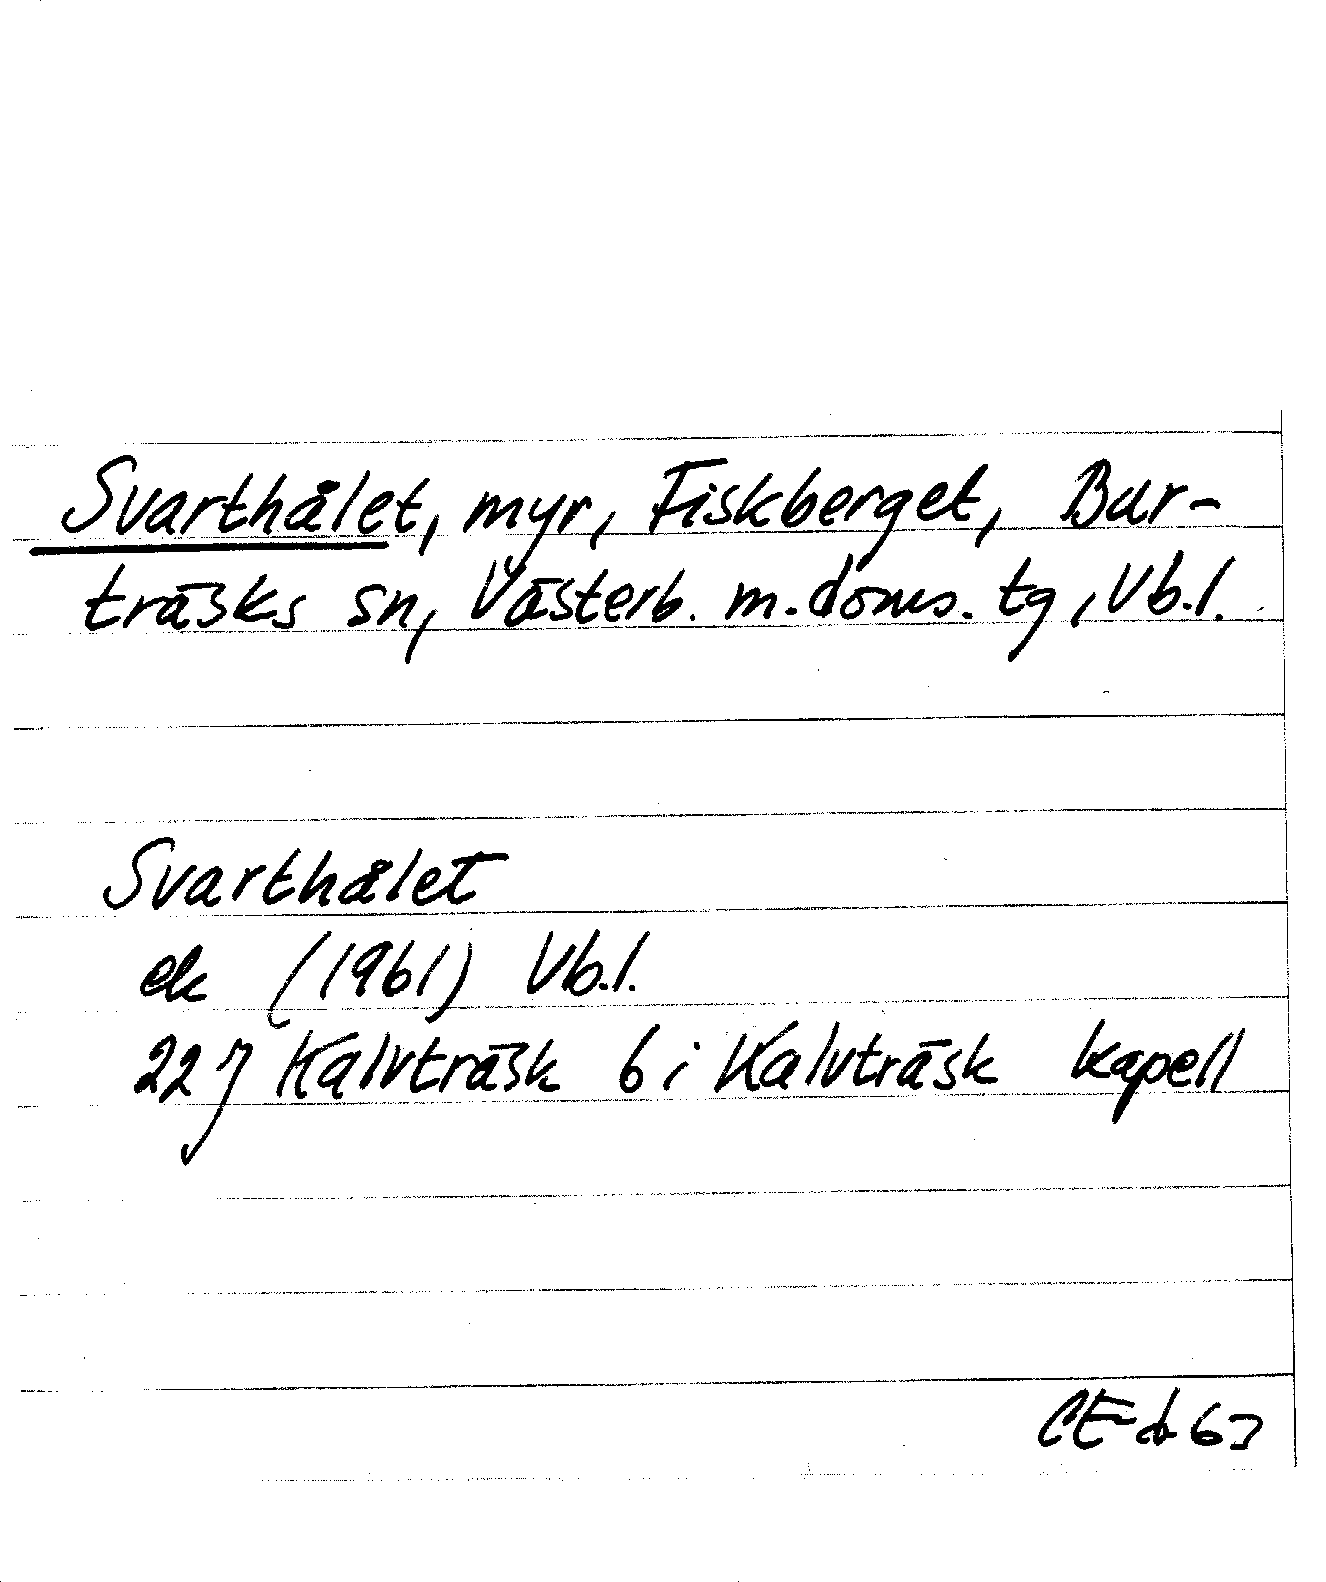 Svarthålet, myr, Fiskberget, Bur-
träsks sn, Västerb. m. doms. tg, Vb.l.
Svarthålet
ek (1961) Vb.l.
22 J Kalvträsk 6 i Kalvträsk kapell